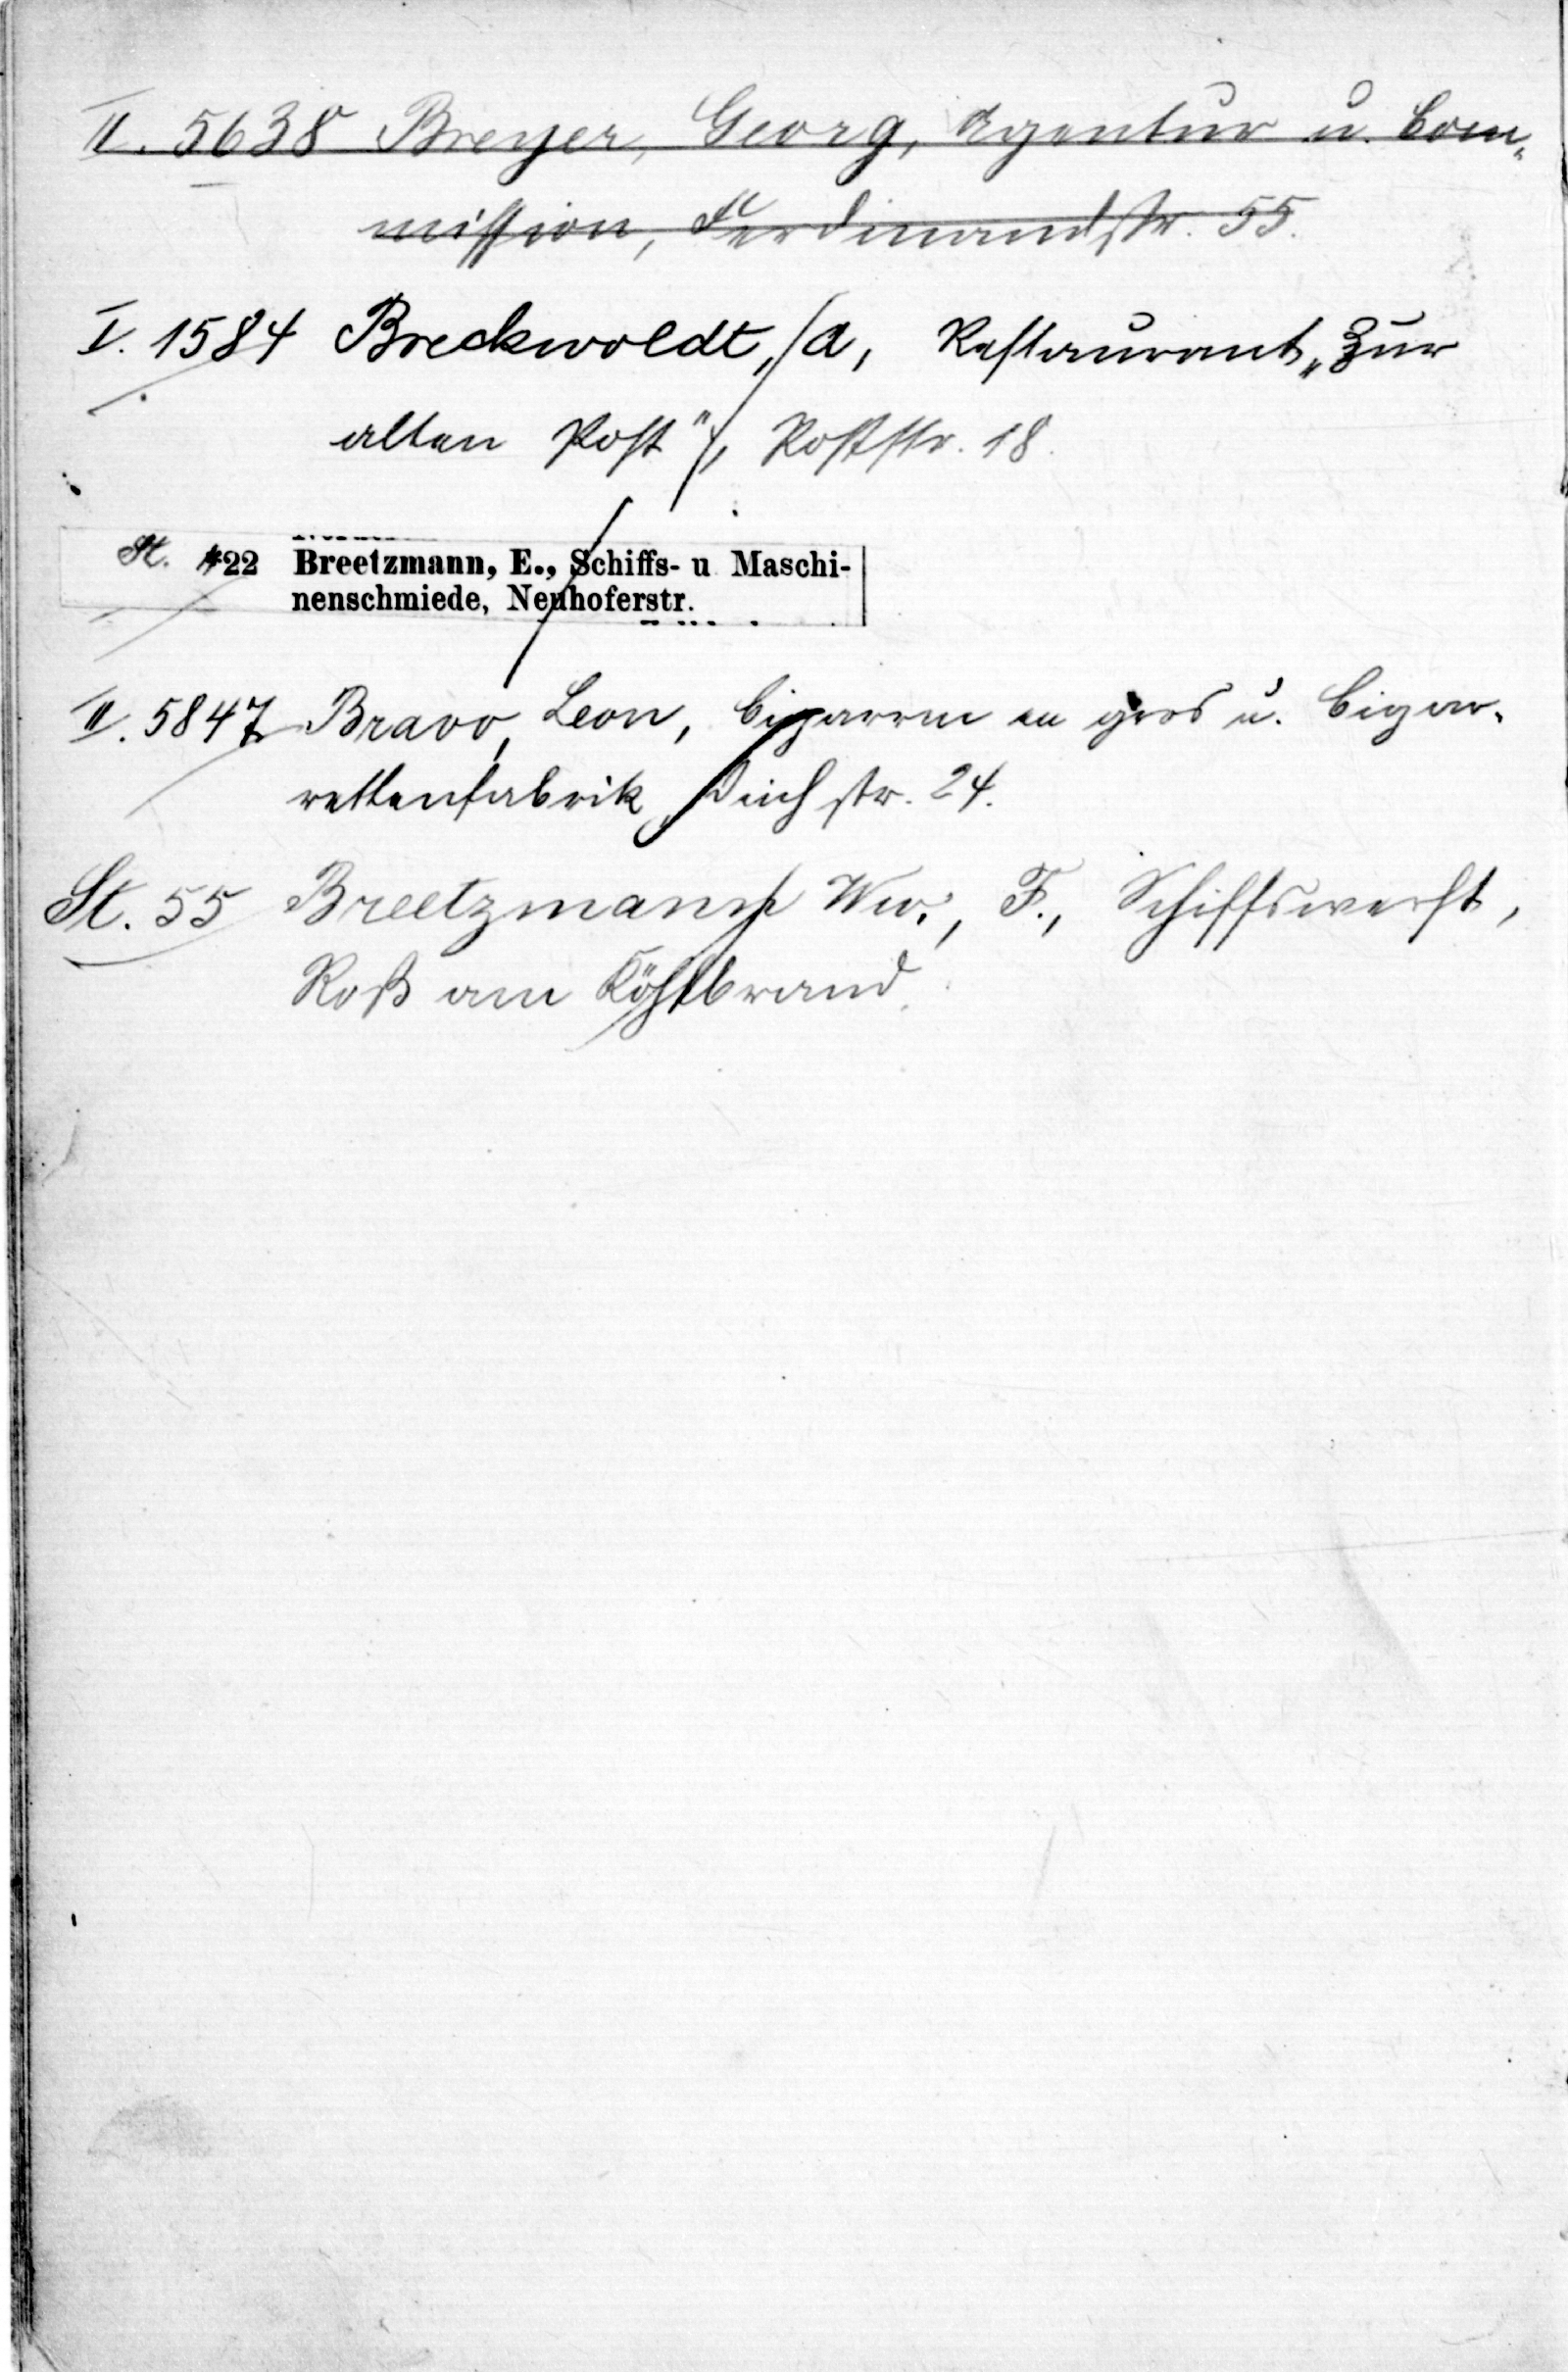 II. 5638 Breyer, Georg, Agentur u. Com-
mission, Ferdinandstr. 55.
I. 1584 Breckwoldt, A, Restaurant „Zur
alten Post", Poststr. 18.
St. 22 Breetzmann, E., Schiffs- u Maschi-
nenschmiede, Neuhoferstr.
II. 5847 Bravo, Leon, Cigarren en gros u. Cigar-
rettenfabrik, Deichstr. 24.
St. 55 Breetzmann Ww., F., Schiffswerft,
Roß am Köhlbrand.